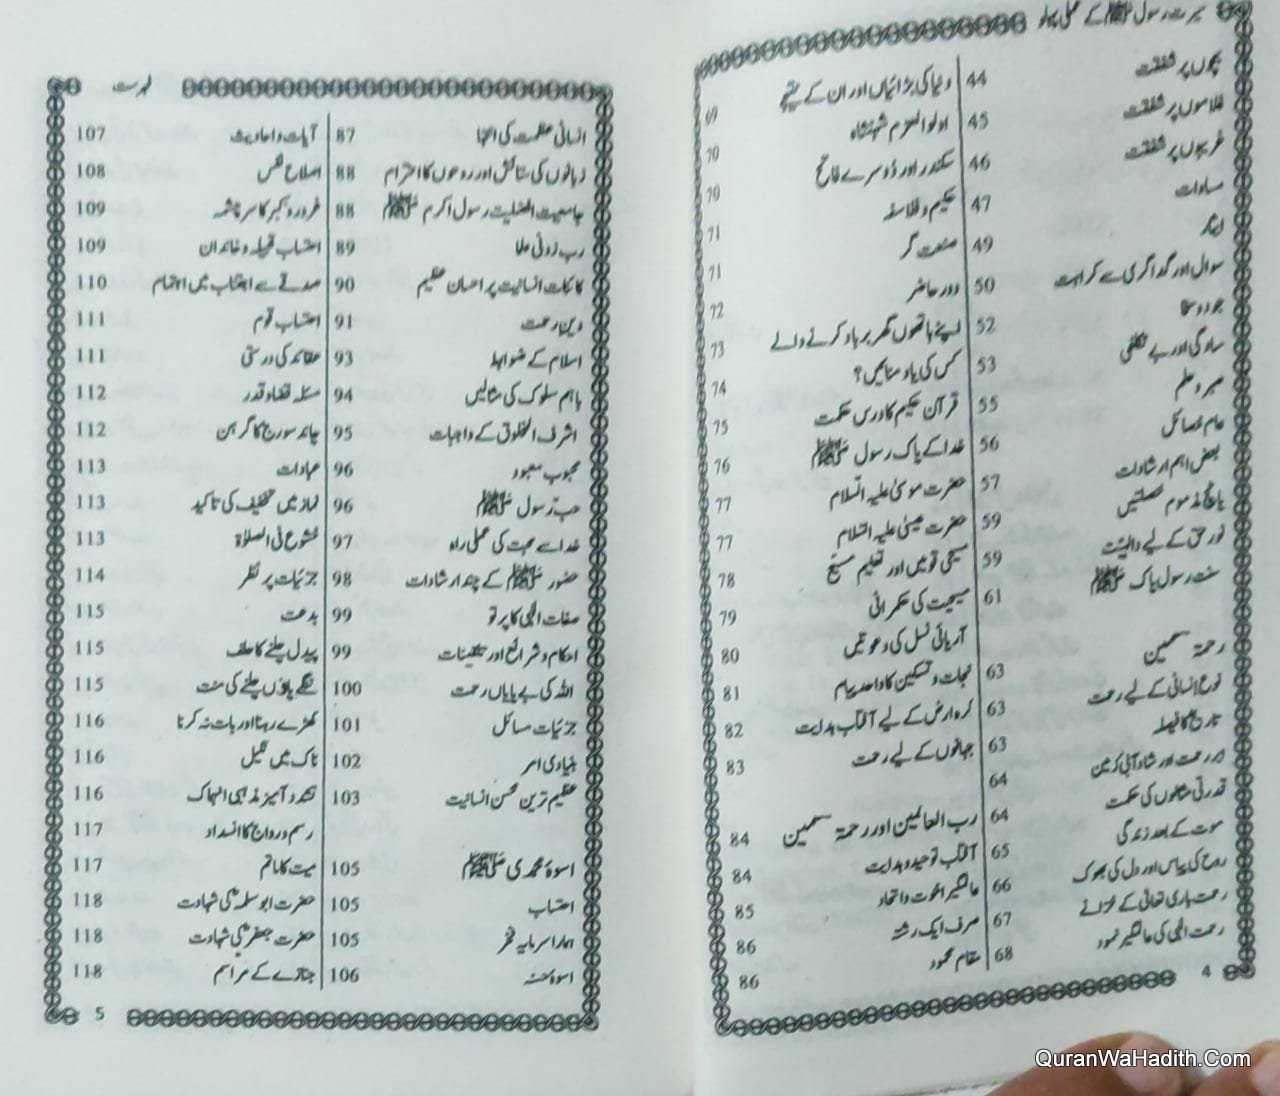 سیرت رسول ﷺ کے عملی پہلو
بچوں پر شفقت 44
غلاموں پر شفقت 45
غریبوں پر شفقت 46
مساوات 47
ایثار 49
سوال اور گداگری سے کراہت 50
جود و سخا 52
سادگی اور بے تکلفی 53
صبر و حلم 55
عام خصائل 56
بعض اہم ارشادات 57
پانچ مذموم خصلتیں 59
نور حق کے لیے 59
سنت رسول پاک ﷺ 61
رحمۃ للعٰلمین 63
نوع انسانی کے لیے رحمت 63
تاریخ کا فیصلہ 63
ابر رحمت اور شادابی کزمین 64
قدرتی مثالوں کی حکمت 64
موت کے بعد زندگی 65
روح کی پیاس اور دل کی بھوک 66
رحمت باری تعالیٰ کے خزانے 67
رحمت الٰہی کی عالمگیر نمود 68
دنیا کی بڑائیاں اور ان کے نتیجے 69
اولوالعزم شہنشاہ 70
سکندر اور دوسرے فاتح 70
حکیم و فلاسفہ 71
صنعت گر 71
دور حاضر 72
اپنے ہاتھوں گھر برباد کرنے والے 73
کس کی یاد منائیں؟ 74
قرآن حکیم کا درس حکمت 75
خدا کے پاک رسول ﷺ 76
حضرت موسیٰ علیہ السلام 77
حضرت عیسیٰ علیہ السلام 77
مسیحی قومیں اور تعلیم مسیح 78
مسیحیت کی حکمرانی 79
آریائی نسل کی دعوتیں 80
نجات و تسکین کا واحد پیام 81
کرہ ارض کے لیے آفتاب ہدایت 82
جہانوں کے لیے رحمت 83
رب العالمین اور رحمۃ للعٰلمین 84
آفتاب توحید و ہدایت 84
عالمگیر اخوت و اتحاد 85
صرف ایک رشتہ 86
مقام محمود 86
4
فہرست
انسانی عظمت کی انتہا 87
زبانوں کی ستائش اور روحوں کا احترام 88
جامعیت افضلیت رسول اکرم ﷺ 88
رب زدنی علما 89
کائنات انسانیت پر احسان عظیم 90
دین رحمت 91
اسلام کے ضوابط 93
باہم سلوک کی مثالیں 94
اشرف المخلوق کے واجبات 95
محبوب معبود 96
حب رسول ﷺ 96
خدا سے محبت کی عملی راہ 97
حضور ﷺ کے چند ارشادات 98
صفات الٰہی کا پرتو 99
احکام و شرائع اور تلقینات 99
اللہ کی بے پایاں رحمت 100
جزئیات مسائل 101
بنیادی امر 102
عظیم ترین محسن انسانیت 103
اسوۂ محمدی ﷺ 105
احتساب 105
ہمارا سرمایہ فخر 105
اسوۂ حسنہ 106
آیات و احادیث 107
اصلاح نفس 108
غرور و تکبر کا سرچشمہ 109
احتساب قبیلہ و خاندان 109
صدقے سے اجتناب میں اہتمام 110
احتساب قوم 111
عقائد کی درستی 111
مسئلہ قضا و قدر 112
چاند سورج کا گرہن 112
عبادات 113
نماز میں تخفیف کی تاکید 113
خشوع فی الصلوٰۃ 113
جزئیات پر نظر 114
بدعت 115
پیدل چلنے کا حلف 115
ننگے پاؤں چلنے کی منت 115
کھڑے رہنا اور بات نہ کرنا 116
ناک میں نکیل 116
تشدد آمیز مذہبی انہماک 116
رسم و رواج کا انسداد 117
میت کا ماتم 117
حضرت ابو سلمہؓ کی شہادت 118
حضرت جعفرؓ کی شہادت 118
جنازے کے مراسم 118
5
QuranWaHadith.Com